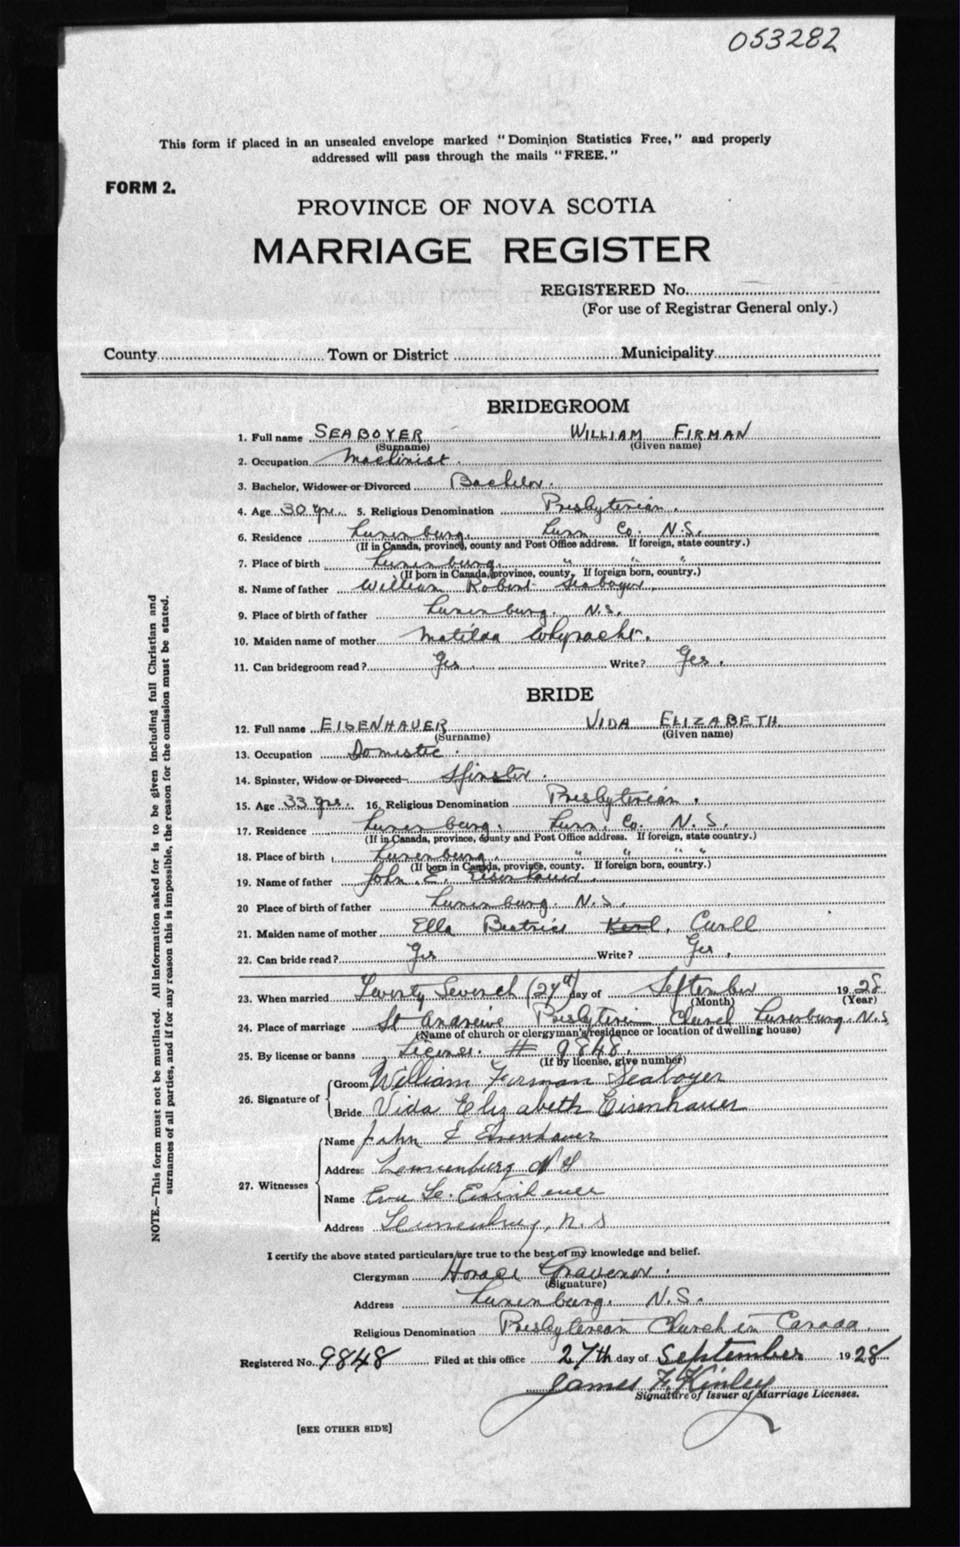 053282
This form if placed in an unsealed envelope marked "Dominion Statistics Free," and properly
addressed will pass through the mails "FREE."
FORM 2.
PROVINCE OF NOVA SCOTIA
MARRIAGE REGISTER
REGISTERED No.
(For use of Registrar General only.)
County Town or District Municipality
BRIDEGROOM
1. Full name SEABOYER WILLIAM FIRMAN
(Surname) (Given name)
2. Occupation Machinist.
3. Bachelor, Widower or Divorced Bachelor.
4. Age 30 yrs. 5. Religious Denomination Presbyterian.
6. Residence Lunenburg. Lun. Co. N.S.
(If in Canada, province, county and Post Office address. If foreign, state country.)
7. Place of birth Lunenburg. " " "
(If born in Canada, province, county. If foreign born, country.)
8. Name of father William Robert Seaboyer.
9. Place of birth of father Lunenburg. N.S.
10. Maiden name of mother Matilda Whynacht.
11. Can bridegroom read? Yes. Write? Yes.
BRIDE
12. Full name EISENHAUER VIDA ELIZABETH
(Surname) (Given name)
13. Occupation Domestic.
14. Spinster, Widow or Divorced Spinster.
15. Age 33 yrs. 16. Religious Denomination Presbyterian.
17. Residence Lunenburg. Lun. Co. N.S.
(If in Canada, province, county and Post Office address. If foreign, state country.)
18. Place of birth Lunenburg. " " "
(If born in Canada, province, county. If foreign born, country.)
19. Name of father John E. Eisenhauer.
20 Place of birth of father Lunenburg. N.S.
21. Maiden name of mother Ella Beatrice Curll
22. Can bride read? Yes Write? Yes.
23. When married Twenty Seventh (27th) day of September 1928
(Month) (Year)
24. Place of marriage St Andrews Presbyterian Church Lunenburg. N.S
(Name of church or clergyman's residence or location of dwelling house)
25. By license or banns License. # 9848.
(If by license, give number)
26. Signature of Groom William Firman Seaboyer
Bride Vida Elizabeth Eisenhauer
27. Witnesses Name John E Eisenhauer
Address Lunenburg N S
Name Eva Eisenhauer
Address Lunenburg, N.S
I certify the above stated particulars are true to the best of my knowledge and belief.
Clergyman Horace Gravenor.
(Signature)
Address Lunenburg. N.S.
Religious Denomination Presbyterian Church in Canada.
Registered No. 9848 Filed at this office 27th day of September 1928
James F. Kinley
Signature of Issuer of Marriage Licenses.
[SEE OTHER SIDE]
NOTE.—This form must not be mutilated. All information asked for is to be given including full Christian and
surnames of all parties, and if for any reason this is impossible, the reason for the omission must be stated.